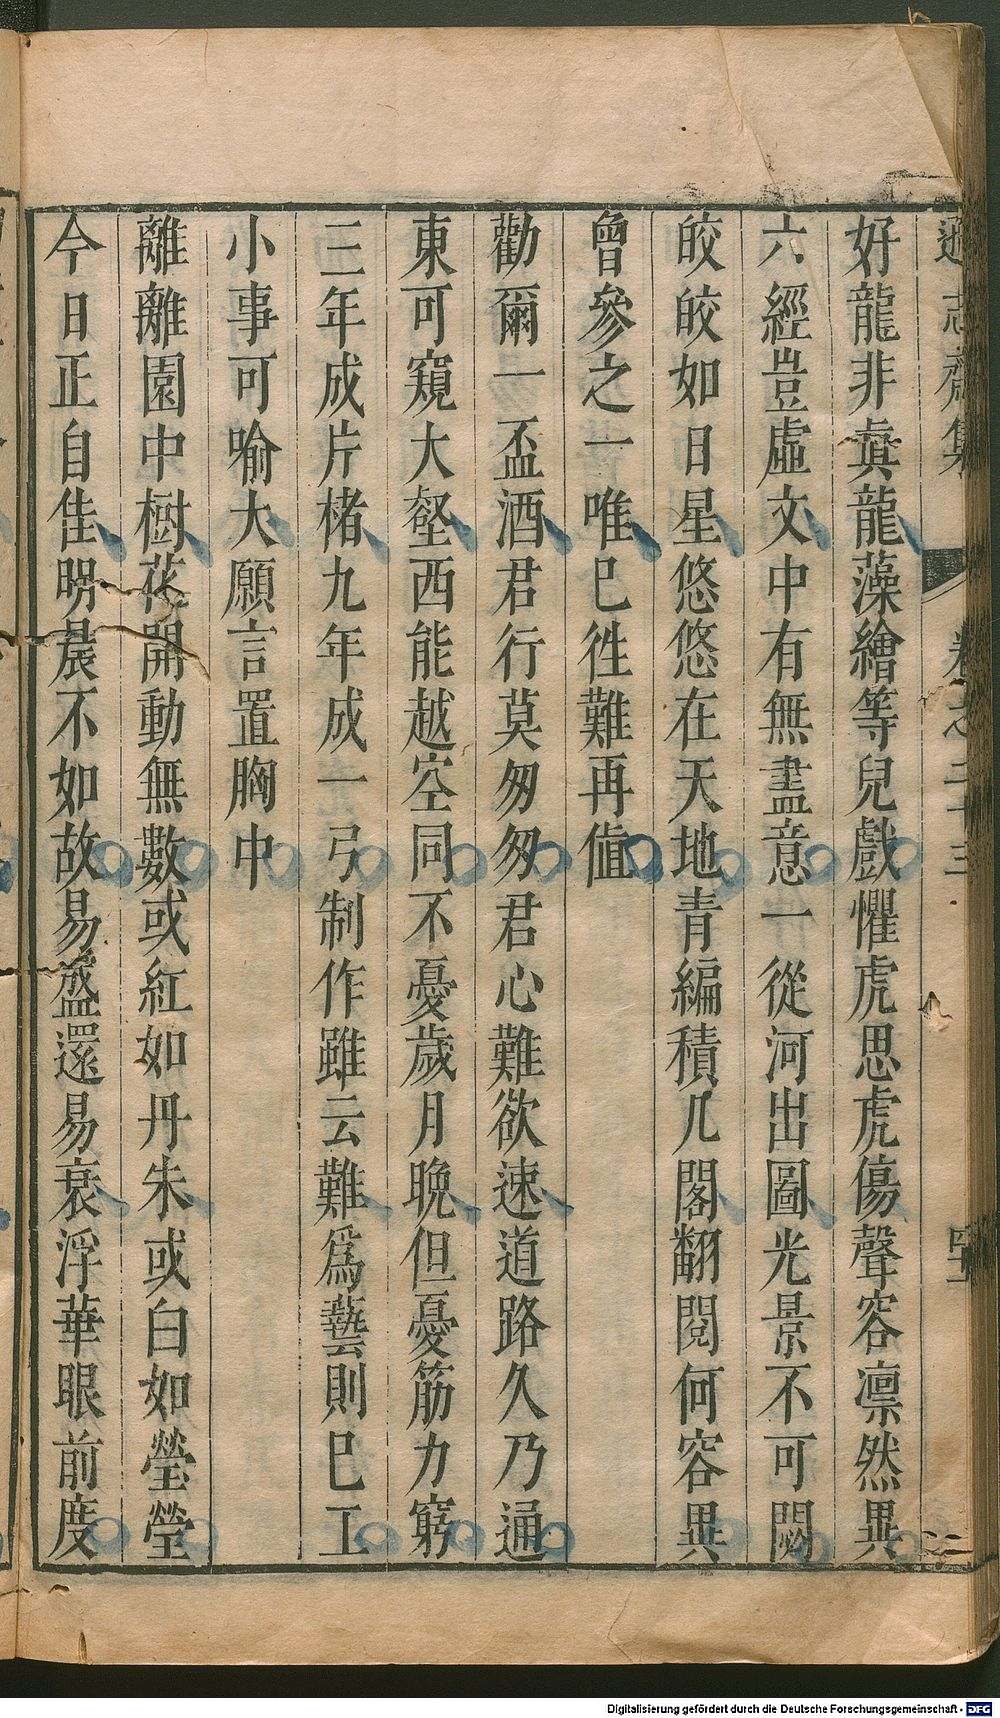 遜志齋集 卷之二十三
好龍非眞龍藻繪等兒戲懼虎思虎傷聲容凛然異
六經豈虛文中有無盡意一從河出圖光景不可閟
皎皎如日星悠悠在天地青編積几閣翻閱何容異
曾參之一唯已徃難再值
勸爾一盃酒君行莫匆匆君心難欲速道路久乃通
東可窺大壑西能越空同不憂歲月晚但憂筋力窮
三年成片楮九年成一弓制作雖云難爲藝則巳工
小事可喻大願言置胸中
離離園中樹花開動無數或紅如丹朱或白如瑩瑩
今日正自佳明晨不如故易盛還易衰浮華眼前度
Digitalisierung gefördert durch die Deutsche Forschungsgemeinschaft - DFG